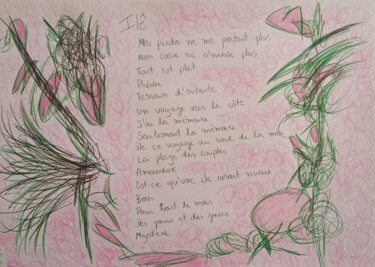 Île
Mes pieds ne me portent plus
Mon coeur ne s'envole plus
Tout est plat
Prévu
Terrain d'entente
Un voyage vers la côte
J'ai la mémoire
Seulement la mémoire
De ce voyage au bord de la mer
La plage des couples
Amoureux
Est-ce qu'une île serait mieux
Bon
Pour tout le mois
Des jours et des jours
Mystère